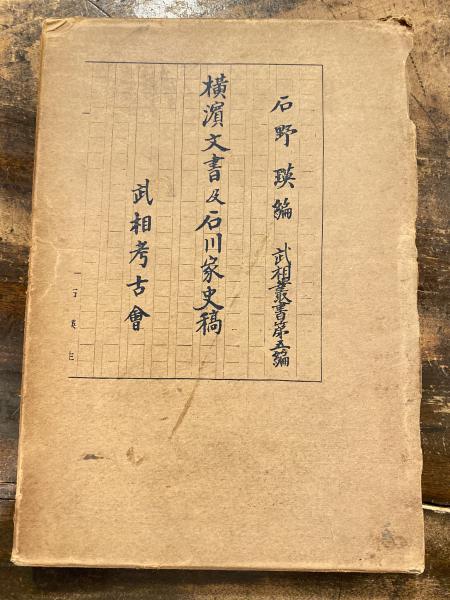 石野瑛編 武相叢書第五編
橫濱文書及石川家史稿
武相考古會